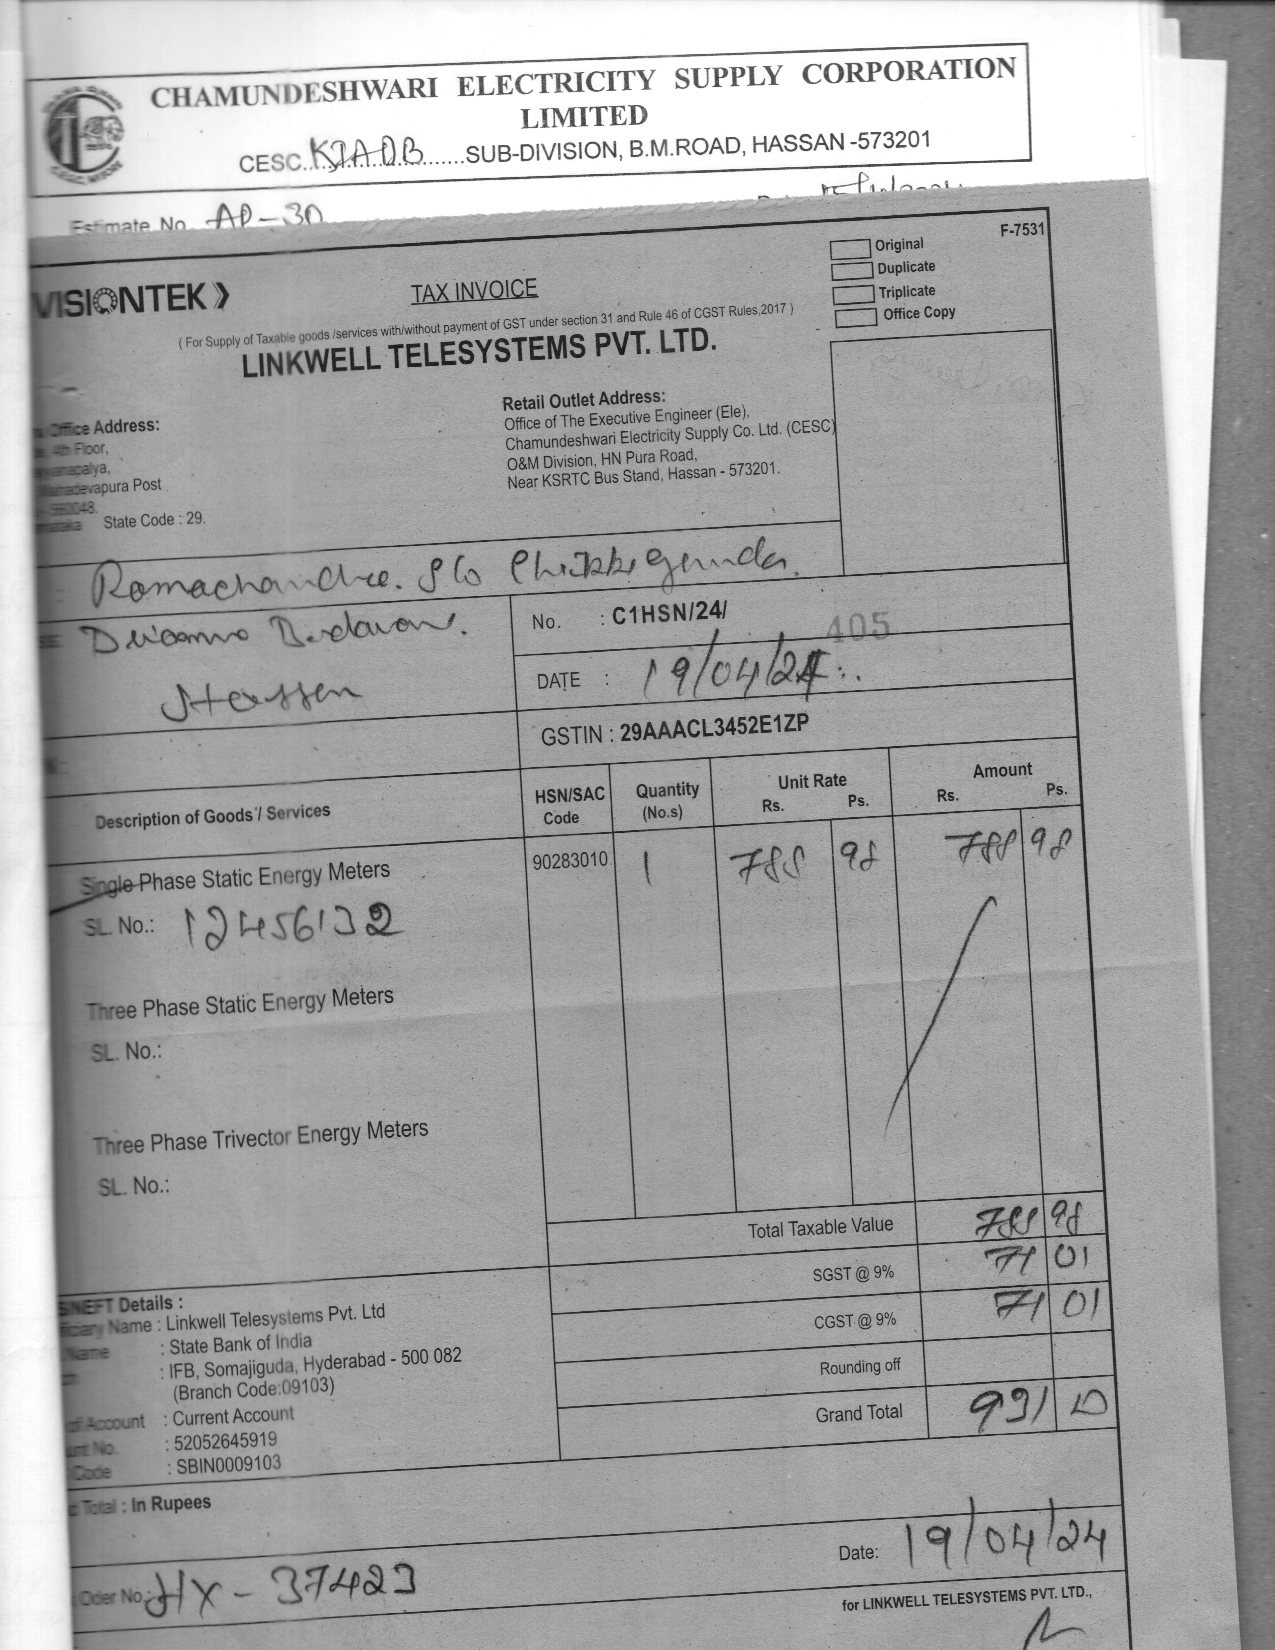 CHAMUNDESHWARI ELECTRICITY SUPPLY CORPORATION
LIMITED
CESC..KIADB.......SUB-DIVISION, B.M.ROAD, HASSAN -573201
Estimate No. AP-30
F-7531
Original
Duplicate
Triplicate
Office Copy
VISIONTEK
TAX INVOICE
( For Supply of Taxable goods /services with/without payment of GST under section 31 and Rule 46 of CGST Rules,2017 )
LINKWELL TELESYSTEMS PVT. LTD.
Office Address:
4th Floor,
State Code : 29.
Retail Outlet Address:
Office of The Executive Engineer (Ele),
Chamundeshwari Electricity Supply Co. Ltd. (CESC)
O&M Division, HN Pura Road,
Near KSRTC Bus Stand, Hassan - 573201.
Ramachandra. S/o Chikkegowda.
Hassan
No. : C1HSN/24/ 405
DATE : 19/04/24
GSTIN : 29AAACL3452E1ZP
Description of Goods / Services HSN/SAC Code Quantity (No.s) Unit Rate Rs. Ps. Amount Rs. Ps.
Single Phase Static Energy Meters 90283010 1 788 98 788 98
SL. No.: 12456132
Three Phase Static Energy Meters
SL. No.:
Three Phase Trivector Energy Meters
SL. No.:
Total Taxable Value 788 98
SGST @ 9% 71 01
CGST @ 9% 71 01
Rounding off
Grand Total 931 00
NEFT Details :
Name : Linkwell Telesystems Pvt. Ltd
Name : State Bank of India
: IFB, Somajiguda, Hyderabad - 500 082
(Branch Code:09103)
of Account : Current Account
No. : 52052645919
Code : SBIN0009103
Total : In Rupees
Date: 19/04/24
Order No.: HX-37423
for LINKWELL TELESYSTEMS PVT. LTD.,